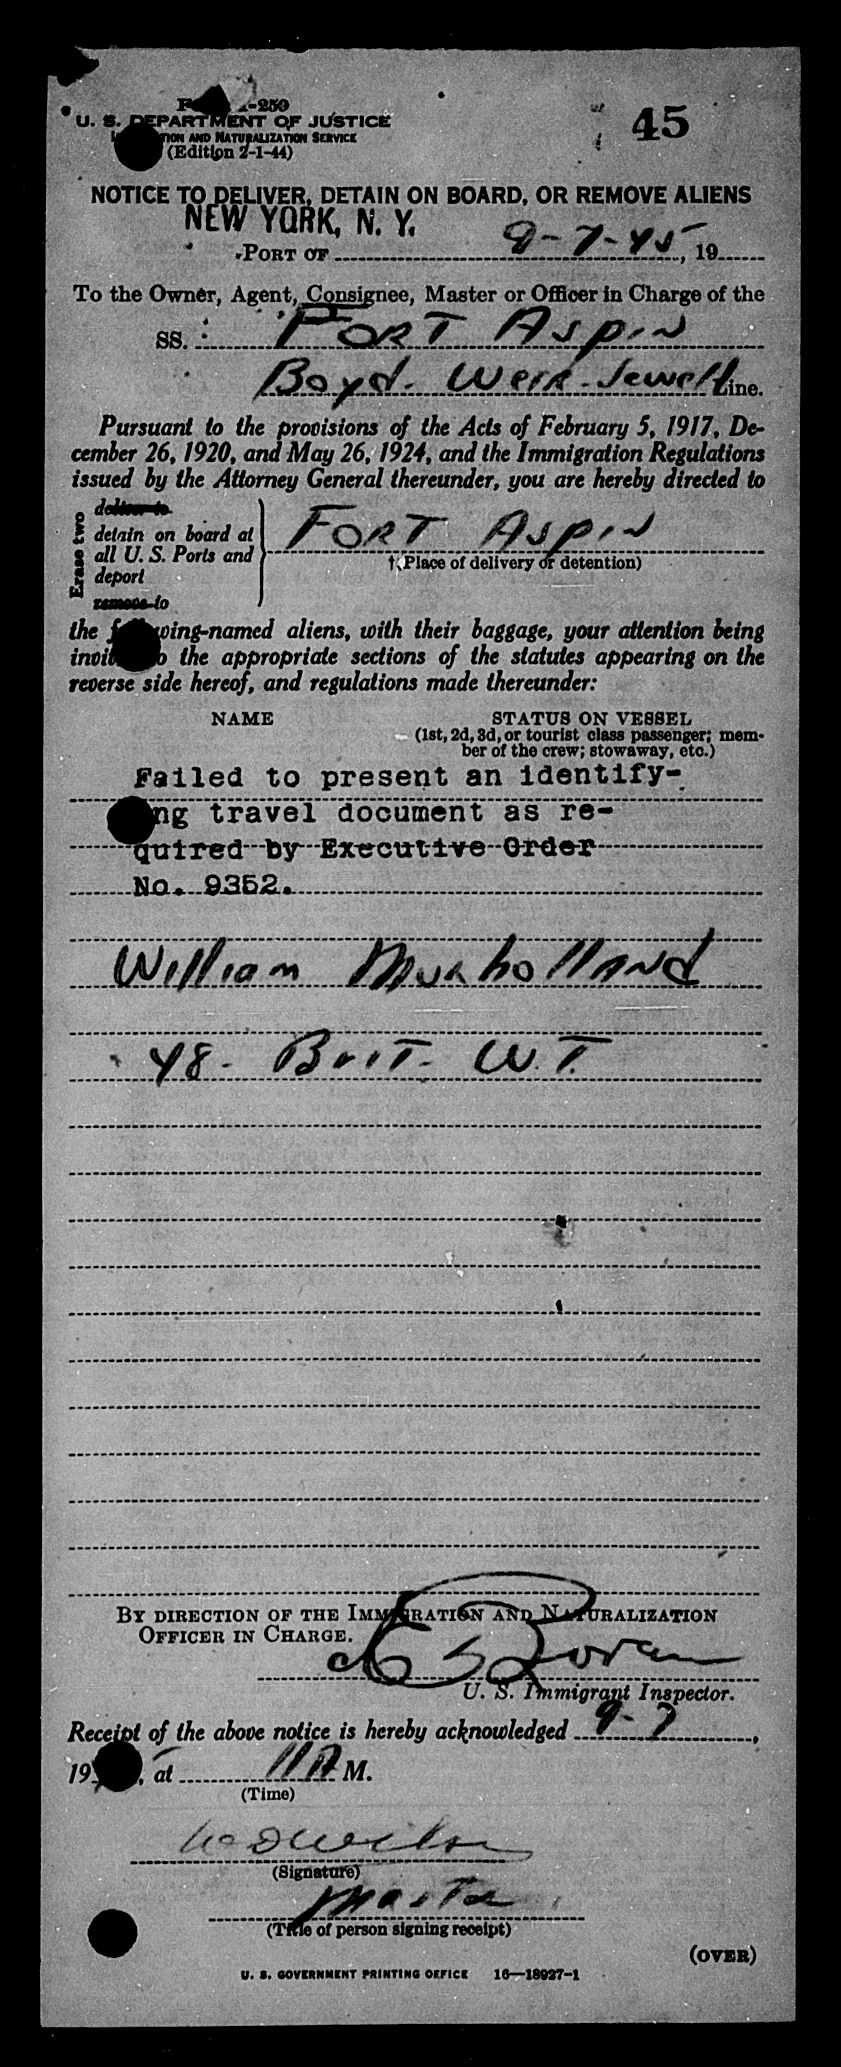 -250
U. S. DEPARTMENT OF JUSTICE
AND NATURALIZATION SERVICE
(Edition 2-1-44)
45
NOTICE TO DELIVER, DETAIN ON BOARD, OR REMOVE ALIENS
NEW YORK, N. Y.
PORT OF 9-7-45, 19
To the Owner, Agent, Consignee, Master or Officer in Charge of the
SS. FORT ASPIN
Boyd-Weir-Sewell Line.
Pursuant to the provisions of the Acts of February 5, 1917, De-
cember 26, 1920, and May 26, 1924, and the Immigration Regulations
issued by the Attorney General thereunder, you are hereby directed to
Erase two
deliver to
detain on board at
all U. S. Ports and
deport
remove to
FORT ASPIN
†(Place of delivery or detention)
the following-named aliens, with their baggage, your attention being
to the appropriate sections of the statutes appearing on the
reverse side hereof, and regulations made thereunder:
NAME
STATUS ON VESSEL
(1st, 2d, 3d, or tourist class passenger; mem-
ber of the crew; stowaway, etc.)
Failed to present an identify-
ing travel document as re-
quired by Executive Order
No. 9352.
William Mulholland
48 - Brit - W.T.
BY DIRECTION OF THE IMMIGRATION AND NATURALIZATION
OFFICER IN CHARGE.
U. S. Immigrant Inspector.
Receipt of the above notice is hereby acknowledged 9-7,
19, at 11 A M.
(Time)
(Signature)
Master
(Title of person signing receipt)
(OVER)
U. S. GOVERNMENT PRINTING OFFICE 16—18927-1